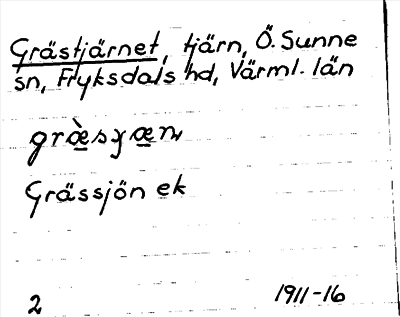 Grästjärnet, tjärn, Ö. Sunne
sn, Fryksdals hd, Värml. län
Grässjön ek
2 1911-16